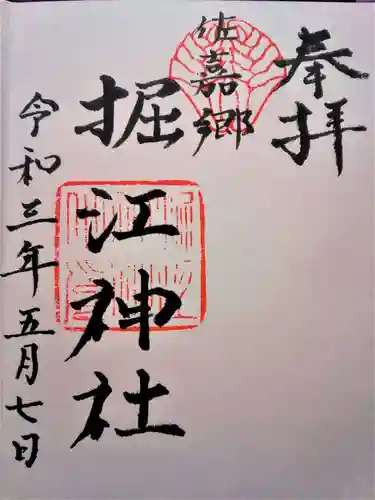 奉拝
佐嘉郷
掘江神社
令和三年五月七日